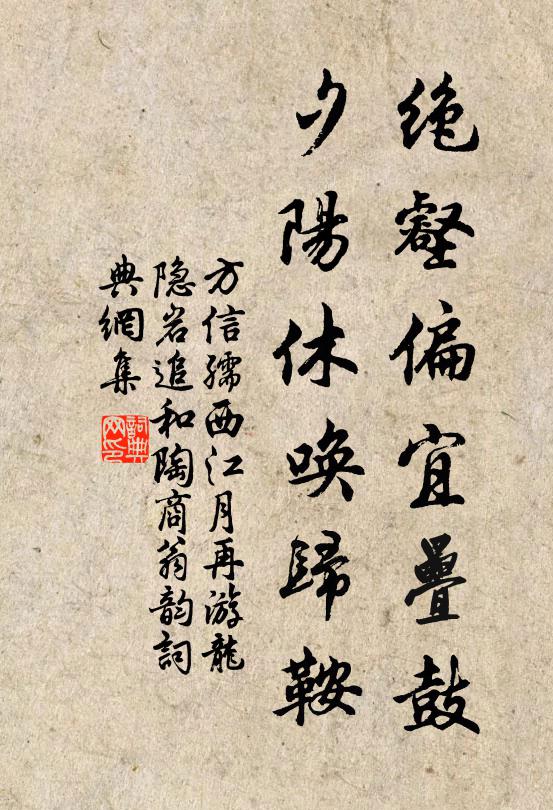 绝壑偏宜疊鼓
夕陽休唤歸鞍
方信孺西江月再游龍
隐岩追和陶商翁韵詞
典網集
詞典
网印